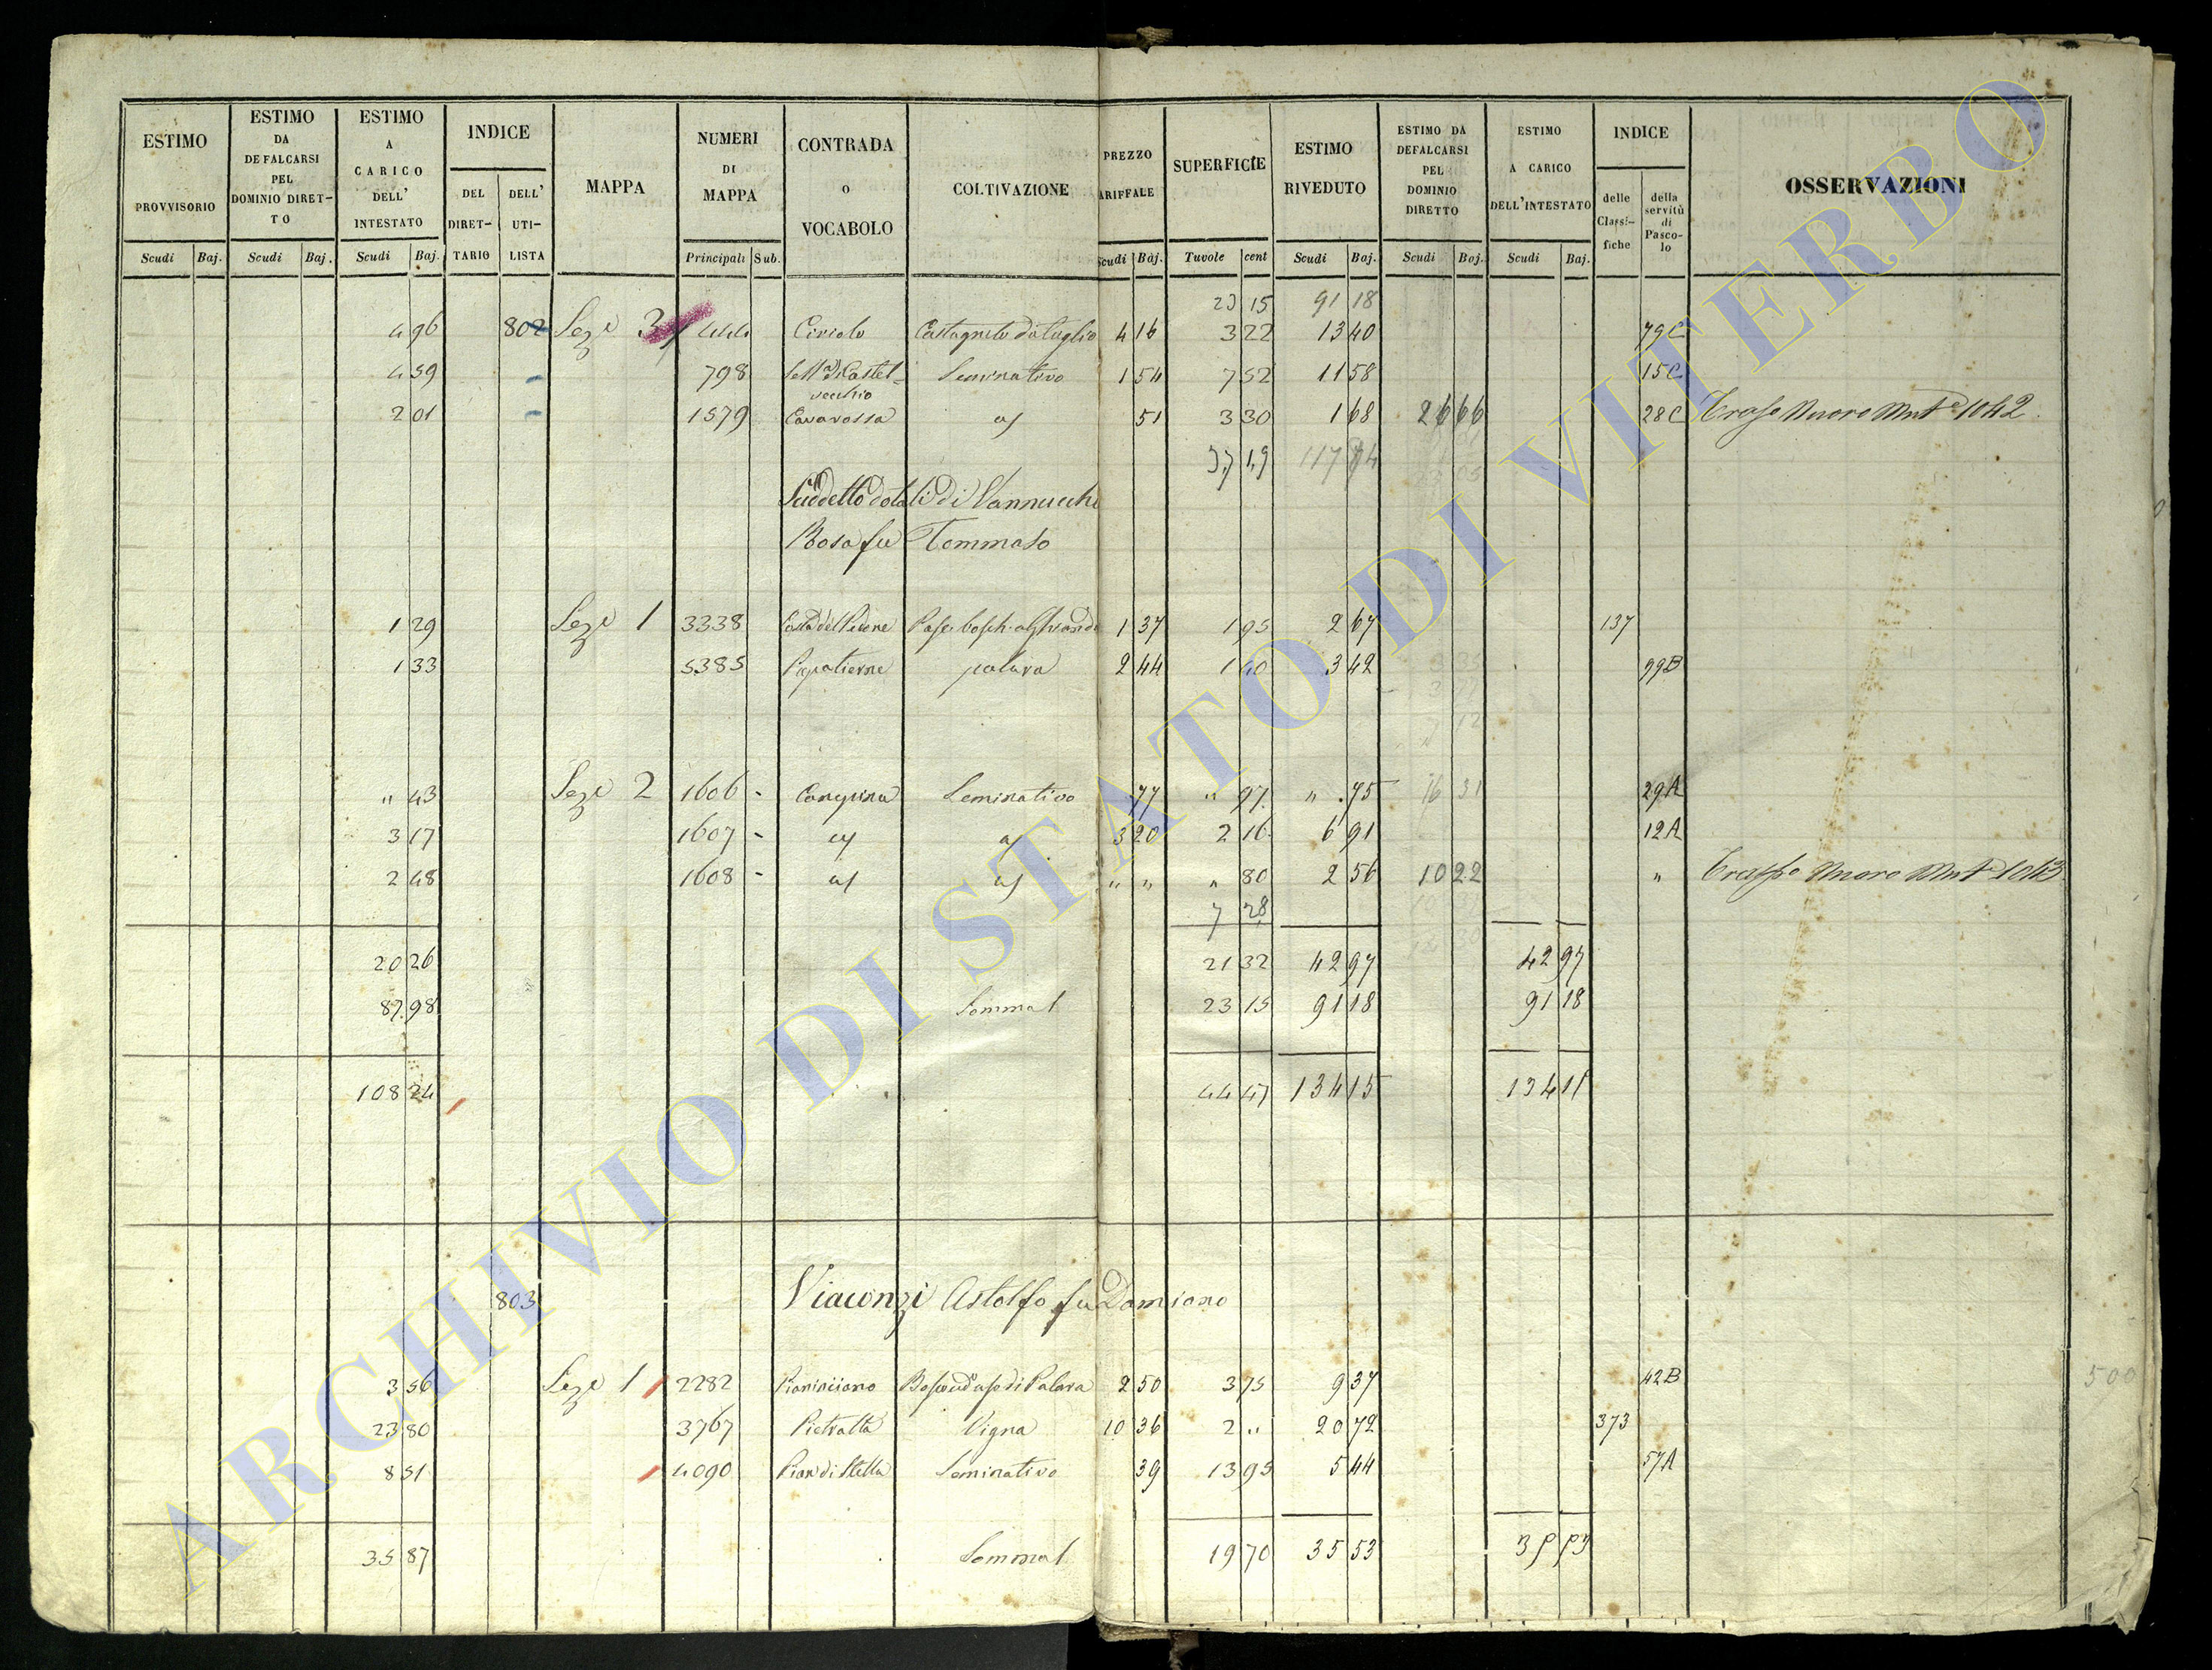 ESTIMO PROVVISORIO Scudi Baj.
ESTIMO DA DEFALCARSI PEL DOMINIO DIRET-TO Scudi Baj.
ESTIMO A CARICO DELL' INTESTATO Scudi Baj.
INDICE DEL DIRET-TARIO DELL' UTI-LISTA
MAPPA
NUMERI DI MAPPA Principali Sub.
CONTRADA o VOCABOLO
COLTIVAZIONE
PREZZO ARIFFALE Scudi Baj.
SUPERFICIE Tavole cent
ESTIMO RIVEDUTO Scudi Baj.
ESTIMO DA DEFALCARSI PEL DOMINIO DIRETTO Scudi Baj.
ESTIMO A CARICO DELL'INTESTATO Scudi Baj.
INDICE delle Classi-fiche della servitù di Pasco-lo
OSSERVAZIONI
23 15 91 18
4 96 802 Sez e 3 444 Ciriolo Castagneto da taglio 4 16 3 22 13 40 79C
4 59 798 Castel-vecchio Seminativo 1 54 7 52 11 58 15C
2 01 1579 Cavarossa 51 3 30 1 68 26 66 28C 1042
37 19 117 84
Suddetto dotali di Vannucchi
Rosa fu Tommaso
1 29 Sez e 1 3338 Costa del Pero Pasc. bosch. a Ghiande 1 37 1 95 2 67 137
1 33 5385 palara 2 44 1 40 3 42 99B
" 43 Sez e 2 1606 - Seminativo 77 " 97 " 75 29A
3 17 1607 - 3 20 2 16 6 91 12A
2 48 1608 - " " " 80 2 56 10 22 " 1043
7 28
20 26 21 32 42 97 42 97
87 98 Somma 23 15 91 18 91 18
108 24 44 47 134 15 134 15
803 Viaconzi Astolfo fu Damiano
3 56 Sez e 1 2282 Pianiciano Bosco ad uso di Palara 2 50 3 75 9 37 42B
23 80 3767 Pietratta Vigna 10 36 2 " 20 72 373
8 51 4090 Pian di Stella Seminativo 39 13 95 5 44 57A
35 87 Somma 19 70 35 53 35 53
500
ARCHIVIO DI STATO DI VITERBO